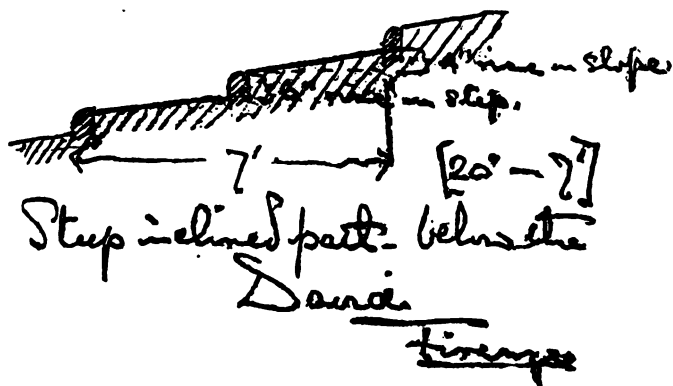 4" rise in slope.
rise in step.
7' [20" — 7']
Step inclined part - below the
David
Firenze